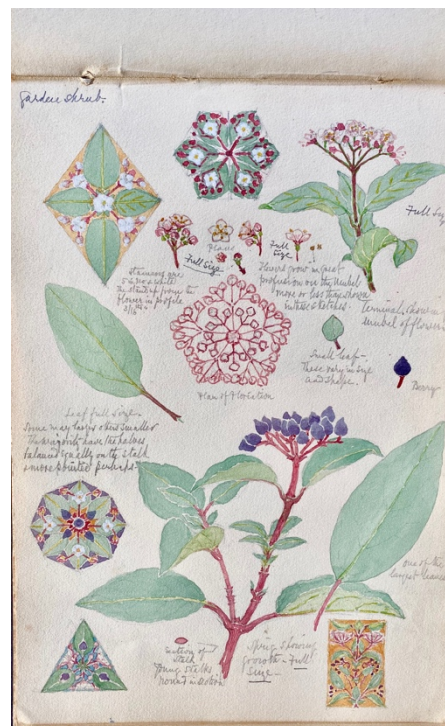 Garden shrub.
Full Size
Plans
Full
Size
Full Size
Stamens are
5 in no & white
flower in profile
Flowers grow in great
profusion on the Umbel
more or less than shown
in these sketches.
Terminal shewing
umbel of flowers
Small leaf
These vary in size
and shape.
Berry
Plan of Floration
Leaf full size
Some may larger others smaller
The majority have the halves
balanced equally on the stalk
& more pointed perhaps.
one of the
largest leaves
Section of
Stalk
Young stalks
round in section
Sprig showing
growth - Full
Size